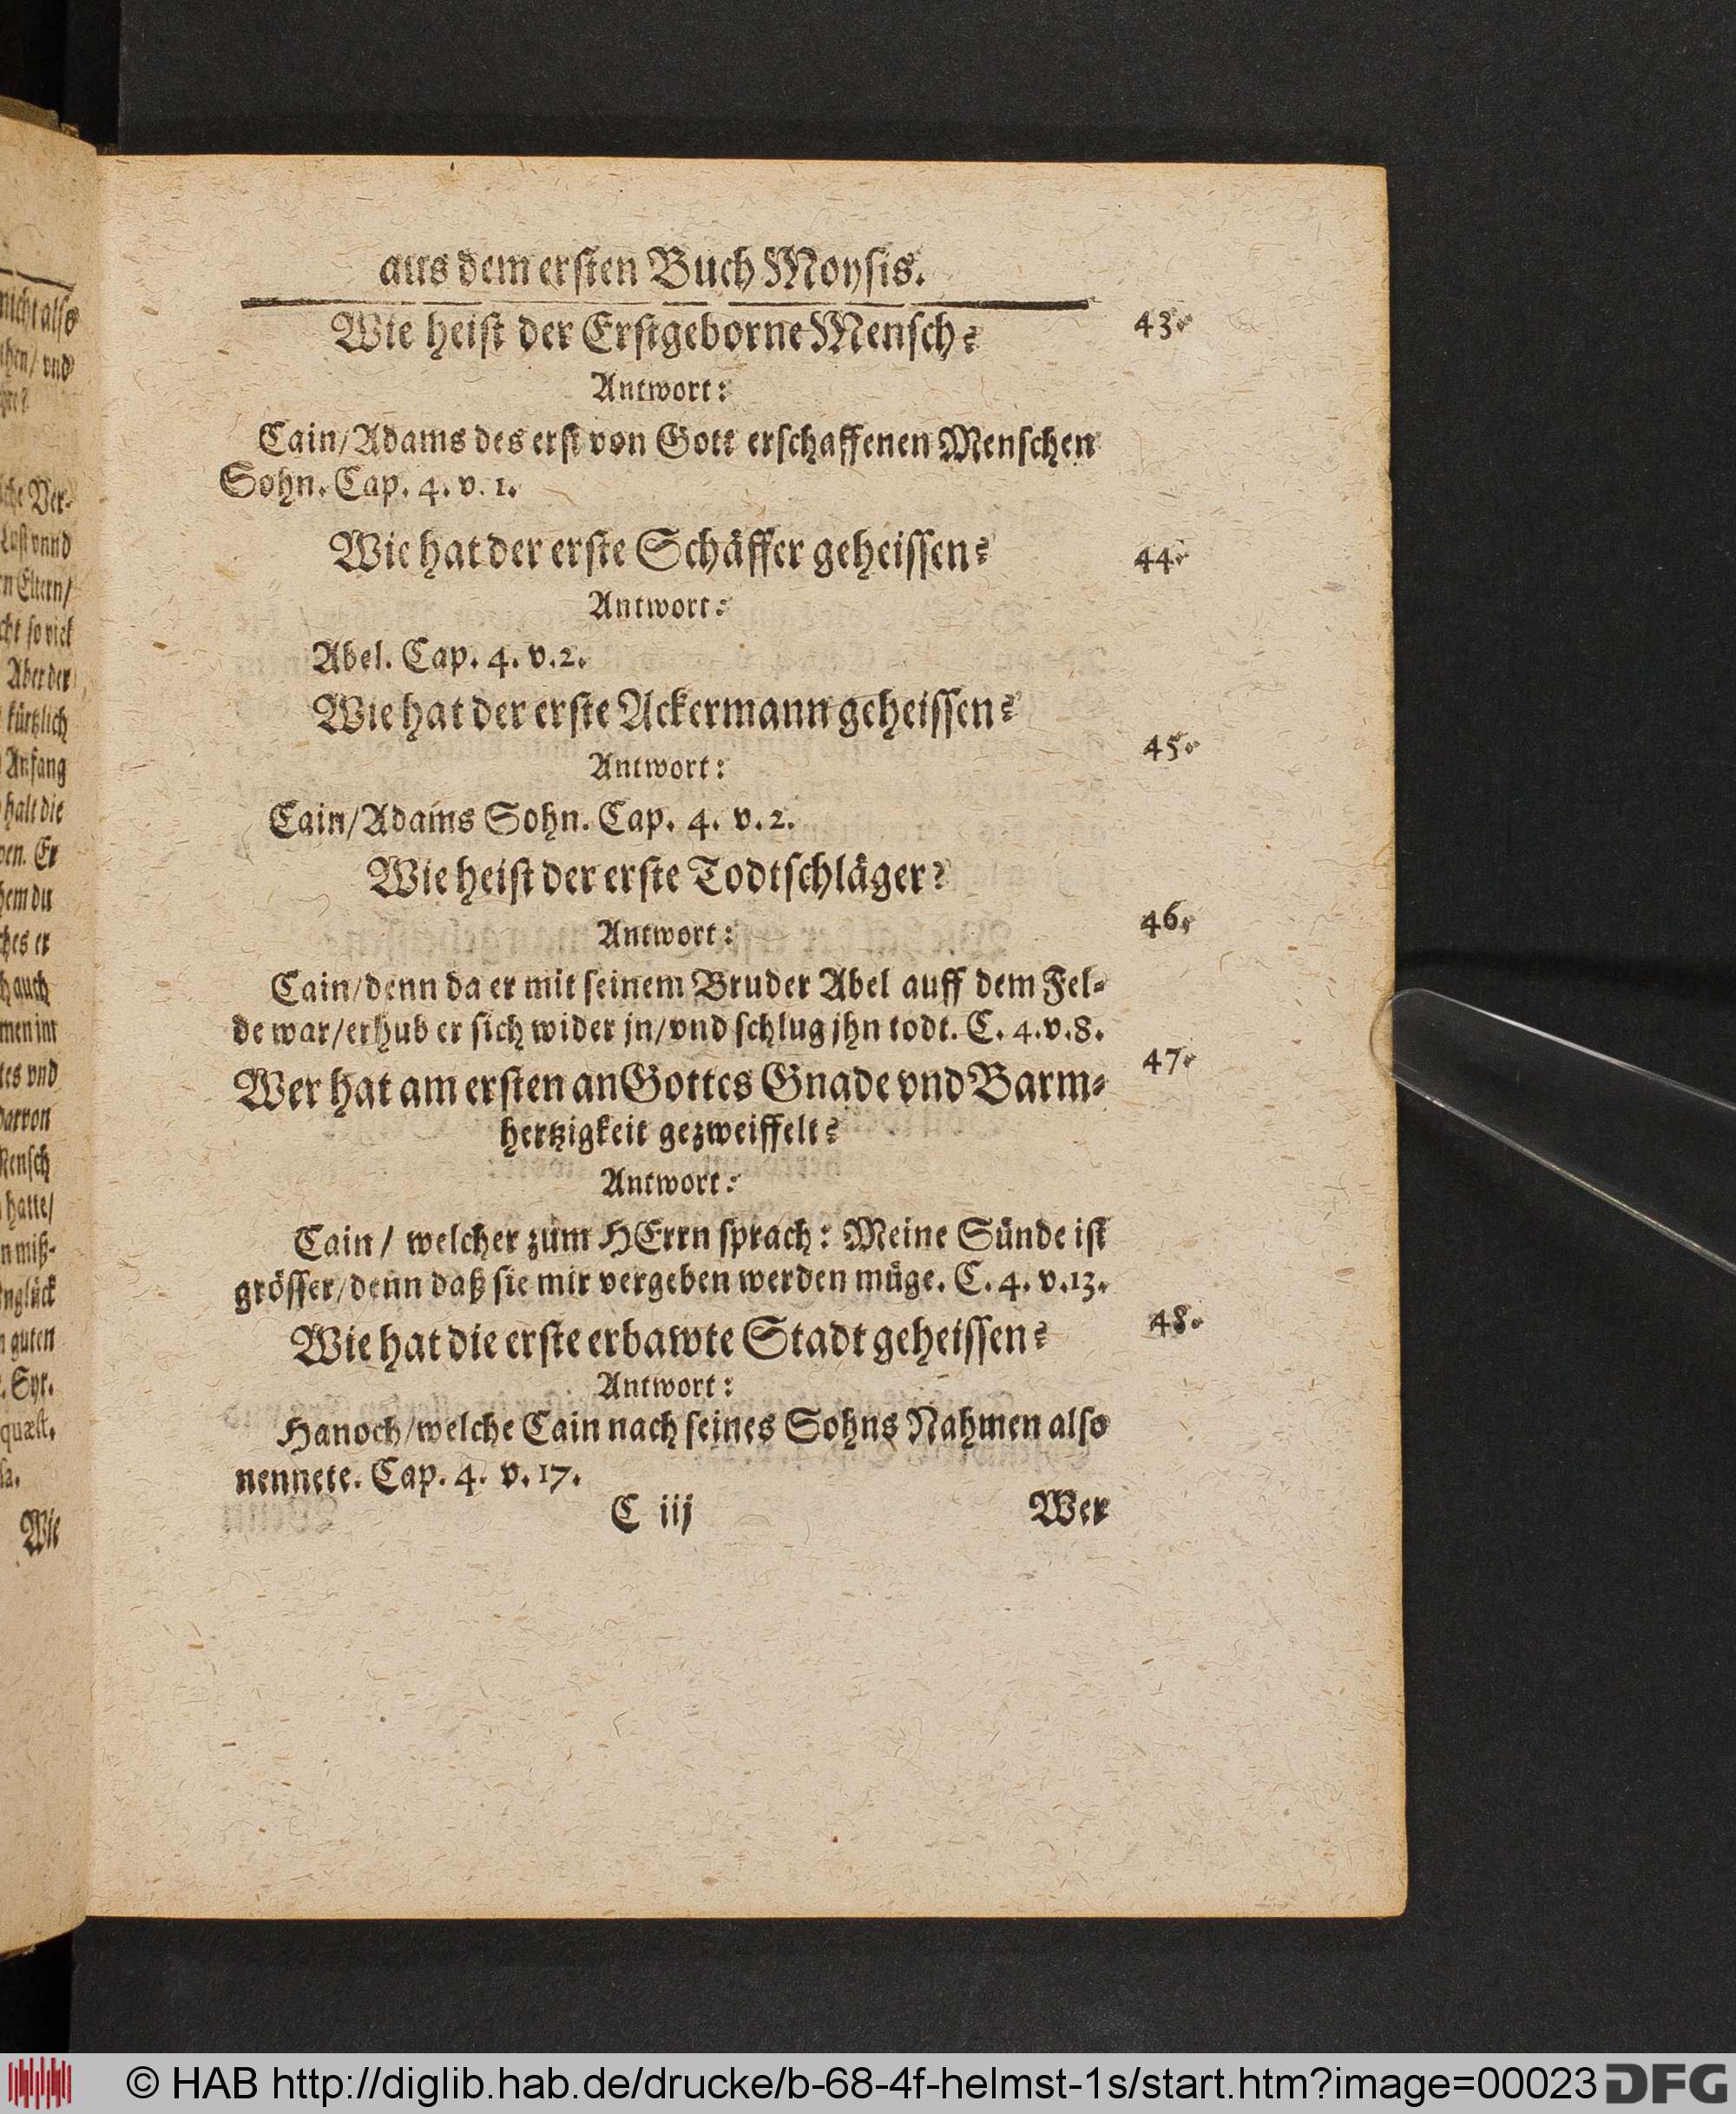 nicht also
/ vnd
Ver-
Last vnnd
Eltern/
so viel
Aber der
kürtzlich
Anfang
halt die
Er
dem du
ches er
auch
men im
tes vnd
darvon
Mensch
hatte/
miß-
Vnglück
guten
Syr.
quæst.
Wie
aus dem ersten Buch Moysis.
Wie heist der Erstgeborne Mensch? 43.
Antwort:
Cain/Adams des erst von Gott erschaffenen Menschen
Sohn. Cap. 4. v. 1.
Wie hat der erste Schäffer geheissen? 44.
Antwort:
Abel. Cap. 4. v. 2.
Wie hat der erste Ackermann geheissen?
45.
Antwort:
Cain/Adams Sohn. Cap. 4. v. 2.
Wie heist der erste Todtschläger?
46.
Antwort:
Cain/denn da er mit seinem Bruder Abel auff dem Fel-
de war/erhub er sich wider jn/vnd schlug jhn todt. C. 4. v. 8.
47.
Wer hat am ersten an Gottes Gnade vnd Barm-
hertzigkeit gezweiffelt?
Antwort:
Cain/ welcher zum HErrn sprach: Meine Sünde ist
grösser/denn daß sie mir vergeben werden müge. C. 4. v. 13.
Wie hat die erste erbawte Stadt geheissen? 48.
Antwort:
Hanoch/welche Cain nach seines Sohns Nahmen also
nennete. Cap. 4. v. 17.
C iij Wer
© HAB http://diglib.hab.de/drucke/b-68-4f-helmst-1s/start.htm?image=00023 DFG